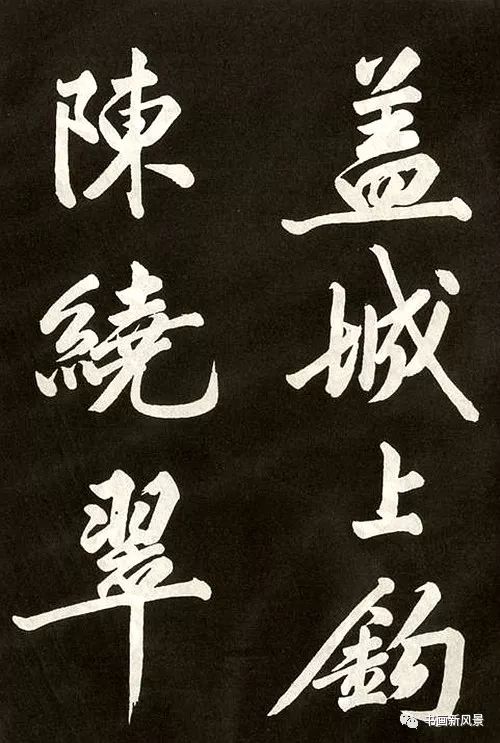 盖城上鈎
陳繞翠
书画新风景